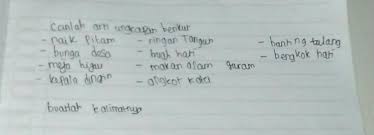 Carilah arti ungkapan berikut
- naik pitam - ringan tangan - banting tulang
- bunga desa - buah hati - bengkok hati
- meja hijau - makan asam garam
- kepala dingin - angkat kaki
buatlah kalimatnya